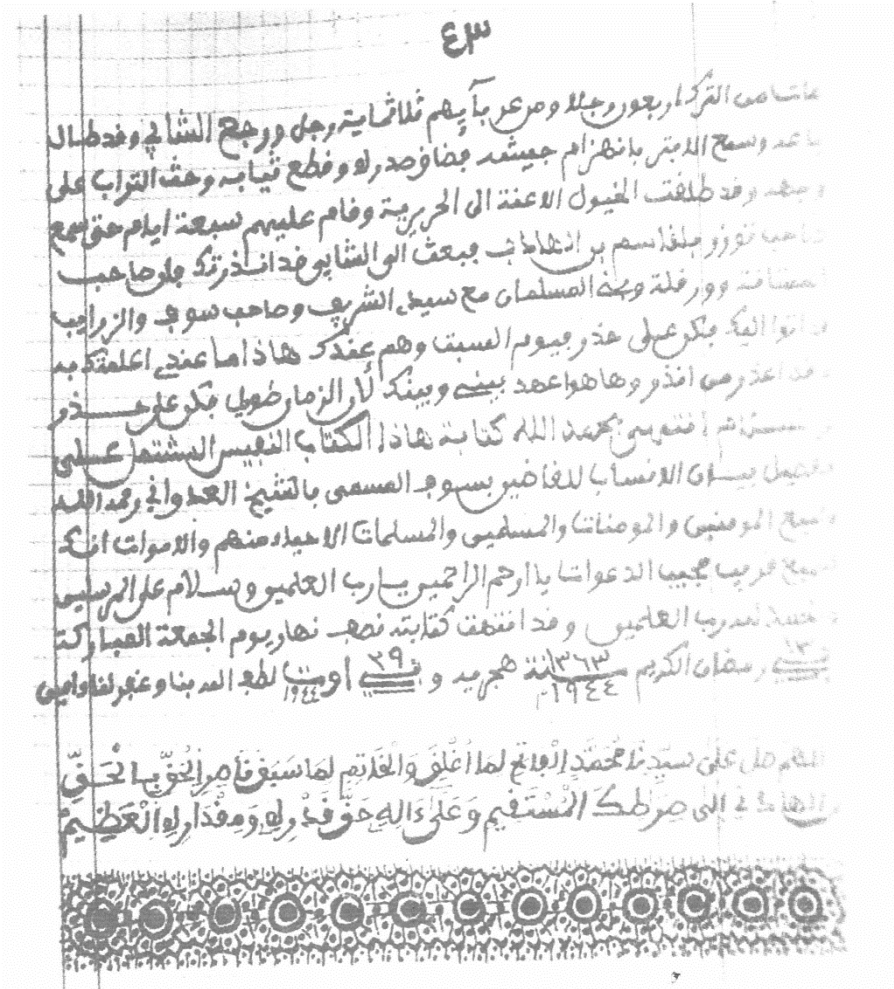 ٤٣
مات من الترك اربعون رجلا ومن عربانهم ثلاثماية رجل ورجع الشابي وقد طال
وسمع الامير بانهزام جيشه فضاق صدره وقطع ثيابه وحف التراب على
وجهه وقد طلقت الخيول الاعنة الى الحريرية وقام عليهم سبعة ايام حتى سمع
صاحب توزر بلقاسم بن فبعث الى الشابي قد انذرتك فان صاحب
وورقلة المسلمان مع سيدي الشريف وصاحب سوف والزرايب
اتوا اليك فكن على حذر فيوم السبت وهم عندك هاذا ما عندي اعلمتك به
وقد اعذر من انذر وها هو اعهد بيني وبينك لأن الزمان طويل فكن على حذر
انتهى بحمد الله كتابة هاذا الكتاب النفيس المشتمل على
تفصيل بيان الانساب للقاضين بسوف المسمى بالشيخ العدواني رحمه الله
وجميع المومنين والمومنات والمسلمين والمسلمات الاحياء منهم والاموات انك
سميع قريب مجيب الدعوات يا ارحم الراحمين يا رب العلمين وسلام على المرسلين
والحمد لله رب العلمين وقد انتهت كتابته نصف نهار يوم الجمعة المباركة
في ١٣ رمضان الكريم سنة ١٣٦٣ هجرية ١٩٤٤م و في ٢٩ اوت ١٩٤٤ لطف الله بنا وغفر لنا وامين
اللهم صل على سيدنا مُحَمَّدٍ الْفَاتِحِ لِمَا أُغْلِقَ وَالْخَاتِمِ لِمَا سَبَقَ نَاصِرِ الْحَقِّ بِالْحَقِّ
والهادي إلى صِرَاطِكَ الْمُسْتَقِيمِ وَعَلَى ءَالِهِ حَقَّ قَدْرِهِ وَمِقْدَارِهِ الْعَظِيمِ